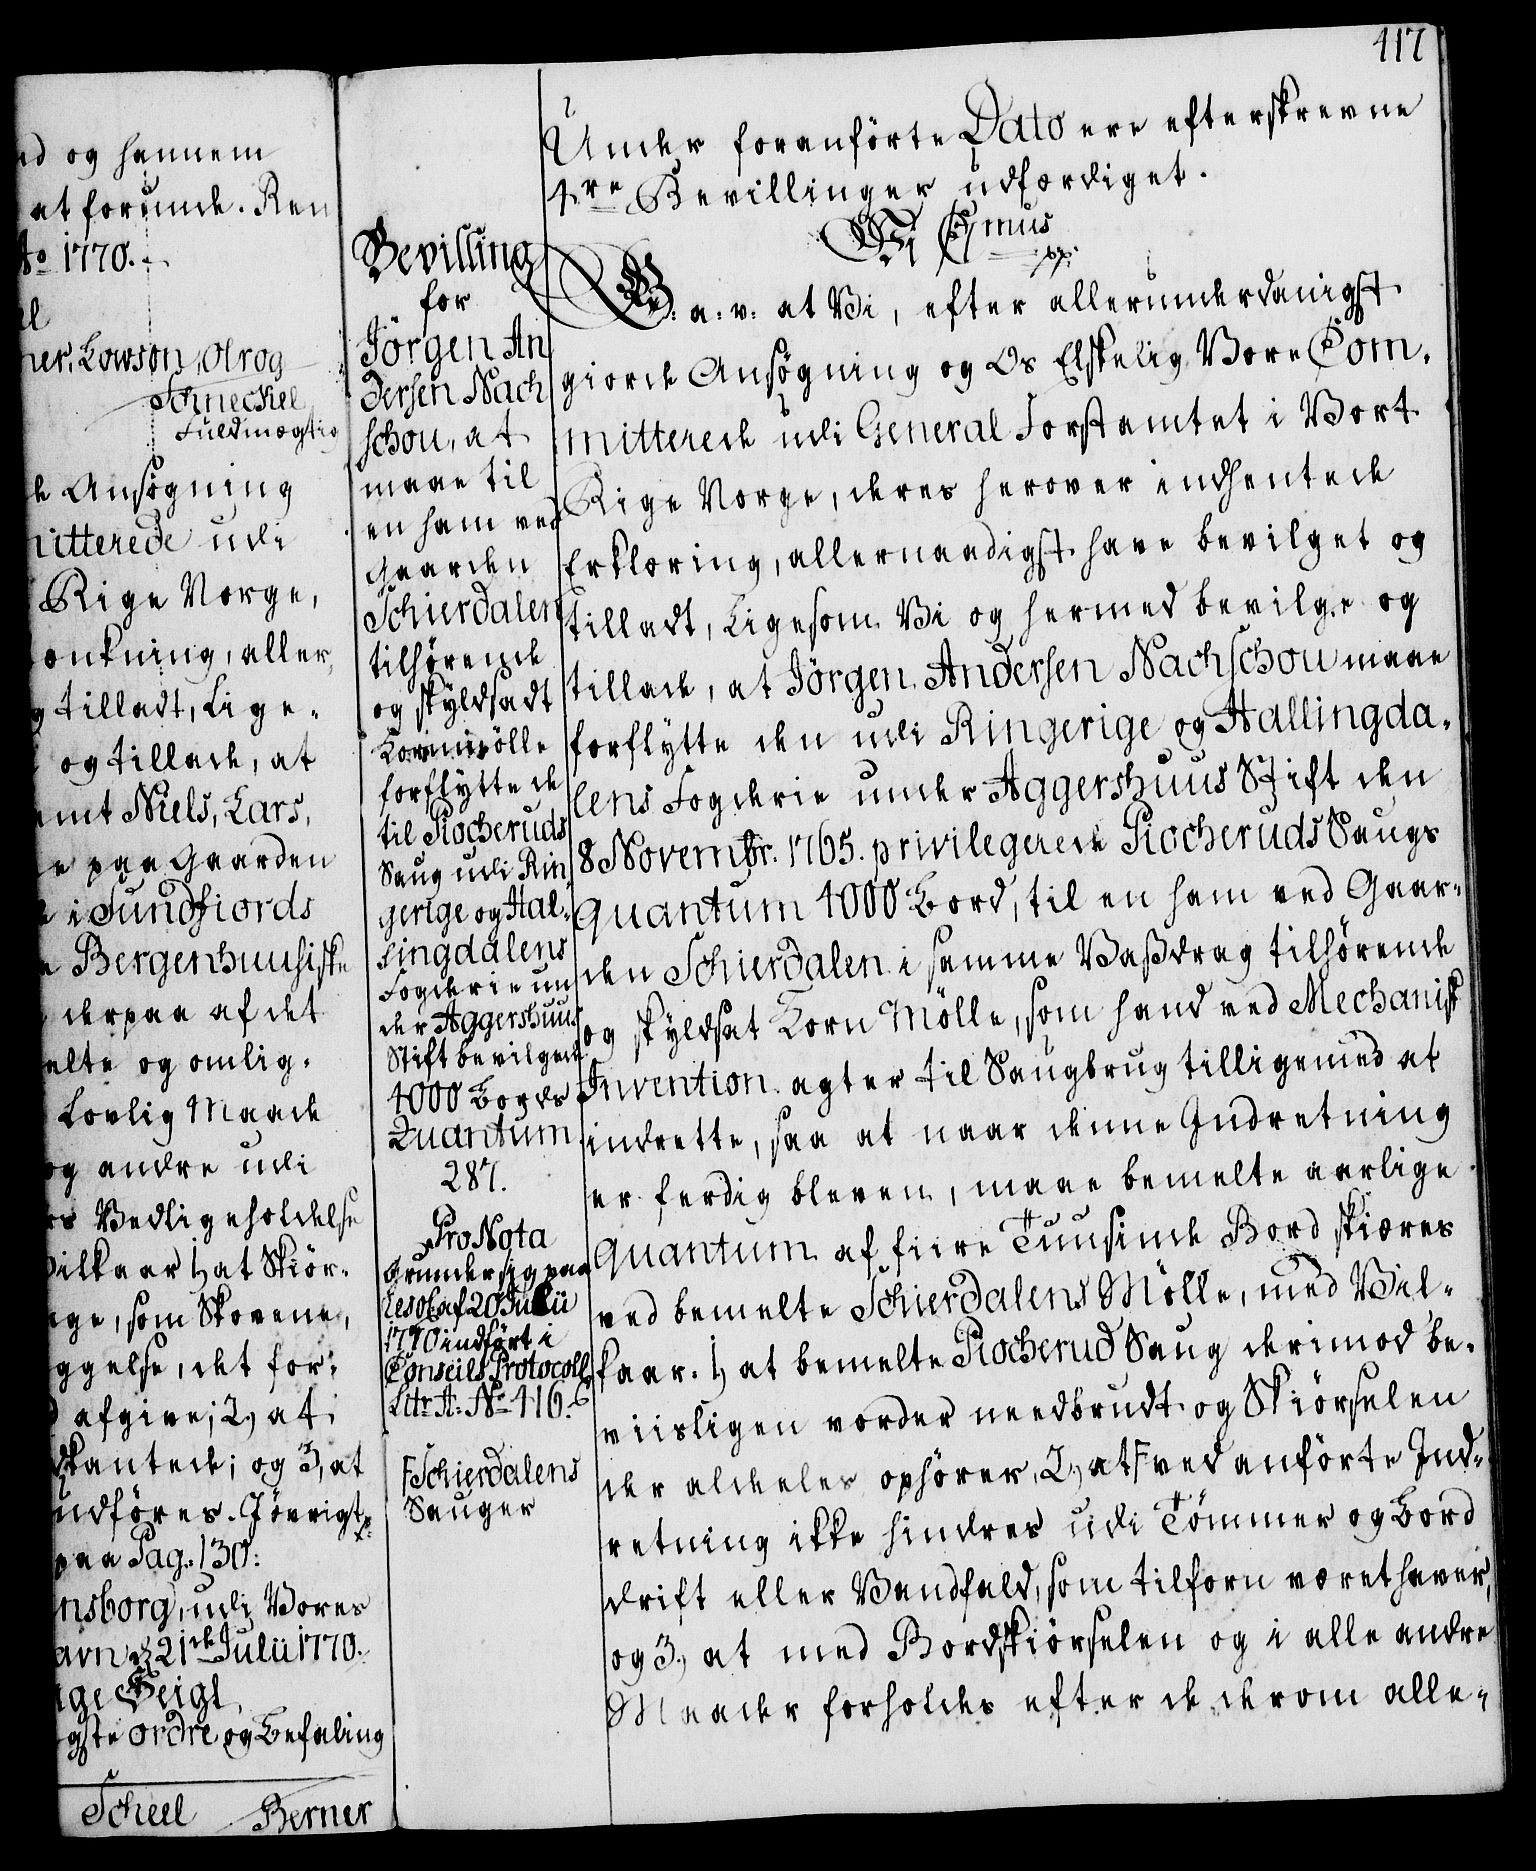 417
nd og hannem
at forunde. Ren
Ao 1770.
el
ner, Lowson, Olrog
Schneckel
Fuldmægtig
de Ansøgning
mitterede udi
Rige Norge,
ænkning, aller
g tilladt, Lige-
og tillade, at
samt Niels, Lars,
e paa Gaarden
i Sundfiords
Bergenhuusiske
derpaa af det
melte og omlig-
Lovlig Maade
og andre udi
rs Vedligeholdelse
Vilkaar 1, at Skiør-
ge, som Skovene,
ggelse, det for-
d afgive; 2, at
dkantede; og 3, at
udføres. Jøvrigt p:
paa Pag: 130:
nsborg, udi Vores
avn d 21de Julii 1770.
ge Seigl
gste ordre og Befaling
Scheel Berner
Bevilling
for
Jørgen An
dersen Nach
schou, at
maae til
en ham ved
Gaarden
Schierdalen
tilhørende
og skyldsadt
Kornmølle
forflytte de
til Piocheruds
Saug udi Rin
gerige og Hal-
lingdalens
Fogderie un
der Aggershuus
Stift bevilgede
4000 Bords
Quantum.
287.
Pro Nota
Grunder sig paa
Resol af 20 Julii
1770 indført i
Conseils Protocoll
Litr A: No 416.
F Schierdalens
Sauger
Under foranførte Dato ere efterskrevne
4re Bevillinger udfærdiget.
Vi C 7mus
pp:
G: a: v: at Vi, efter allerunderdanigst
giorde Ansøgning og Os Elskelig Vore Com-
mitterede udi General Forstamtet i Vort
Rige Norge, deres herover indhentede
Erklæring, allernaadigst have bevilget og
tilladt, Ligesom Vi og hermed bevilge og
tillade, at Jørgen Andersen Nachschou maae
forflytte den udi Ringerige og Hallingda-
lens Fogderie under Aggershuus Stift den
8 Novembr. 1765. privilegerede Piocheruds Saugs
Quantum 4000 Bord, til en ham ved Gaar-
den Schierdalen i samme Vaßdrag tilhørende
og skyldsat Korn Mølle, som hand ved Mechanisk
Invention agter til Saugbrug tilligemed at
indrette, saa at naar denne Indretning
er ferdig bleven, maae bemelte aarlige
Quantum af fiire Tuusinde Bord skiæres
ved bemelte Schierdalens Mølle, med Vil-
kaar. 1, at bemelte Piocherud Saug derimod be-
viisligen vorder needbrudt og Skiørselen
der aldeles ophører, 2, at F ved anførte Ind-
retning ikke hindres udi Tømmer og Bord
drift eller Vandfald, som tilforn været haver,
og 3, at med Bordskiørselen og i alle andre
Maader forholdes efter de derom alle-